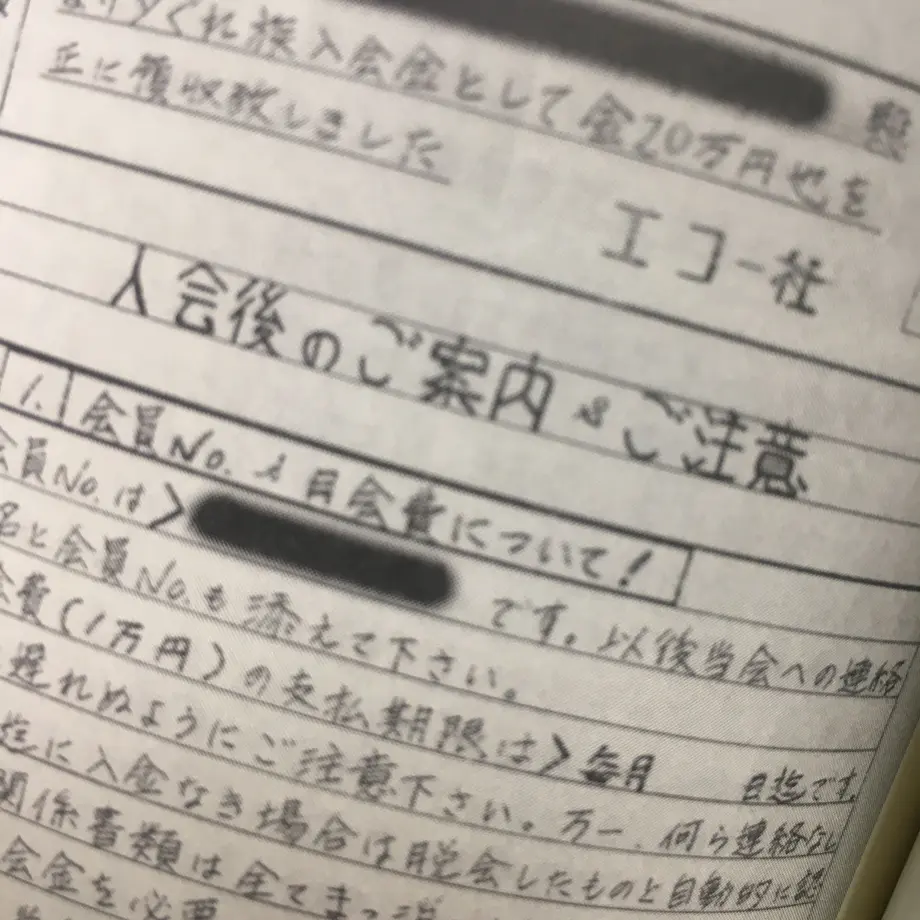 殿
くれ族入会金として金20万円也を
正に領収致しました
エコー社
入会後のご案内&ご注意
1. 会員No.&月会費について!
会員No.は> です。以後当会への連絡
名と会員No.も添えて下さい。
会費(1万円)の支払期限は>毎月 日迄です
遅れぬようにご注意下さい。万一、何ら連絡なし
迄に入金なき場合は脱会したものと自動的に
関係書類は全てま
会金を必要